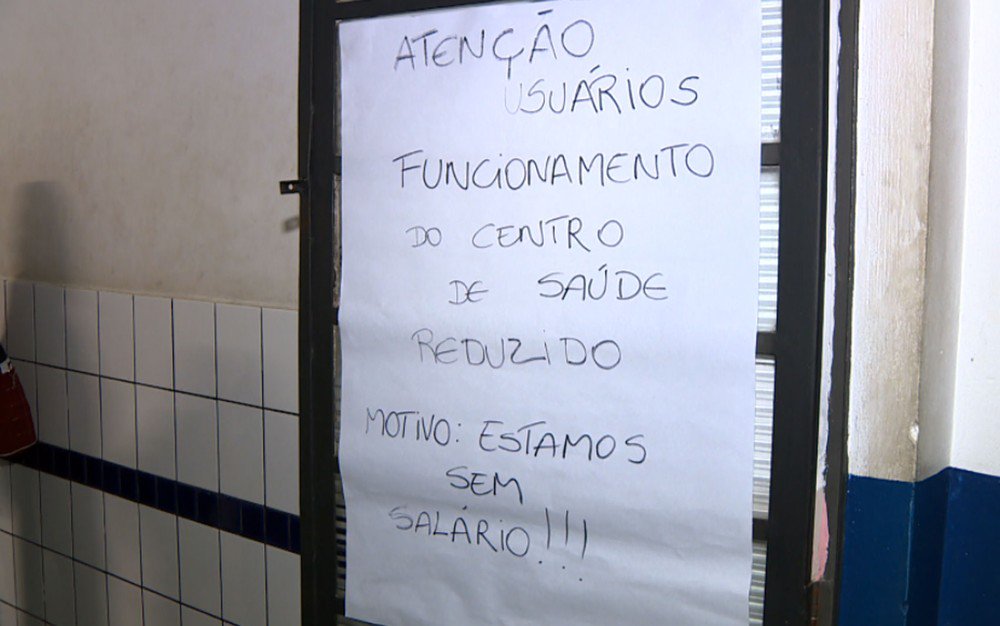 ATENÇÃO
USUÁRIOS
FUNCIONAMENTO
DO CENTRO
DE SAÚDE
REDUZIDO
MOTIVO: ESTAMOS
SEM
SALÁRIO!!!